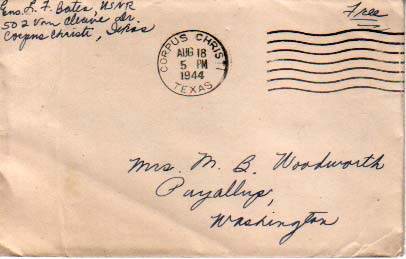 Ens. L. F. Bates, USNR
502 Van Cleave Dr.
Corpus Christi, Texas
Free
CORPUS CHRISTI
AUG 18
5 PM
1944
TEXAS
Mrs. M. B. Woodworth
Puyallup,
Washington